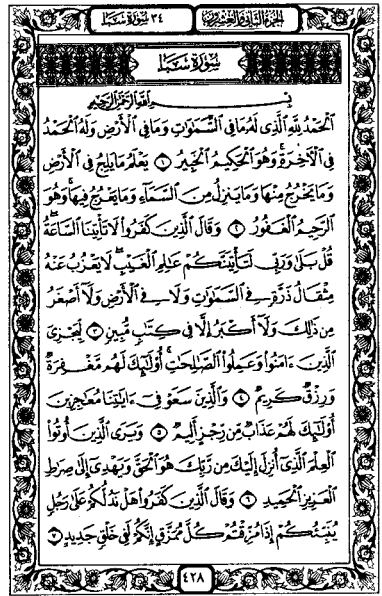 ٣٤ سورة سبإ
الجزء الثاني والعشرون
سورة سبإ
بسم الله الرحمن الرحيم
الحمد لله الذى له ما فى السموات وما فى الأرض وله الحمد
فى الآخرة وهو الحكيم الخبير ١ يعلم ما يلج فى الأرض
وما يخرج منها وما ينزل من السماء وما يعرج فيها وهو
الرحيم الغفور ٢ وقال الذين كفروا لا تأتينا الساعة
قل بلى وربى لتأتينكم عالم الغيب لا يعزب عنه
مثقال ذرة فى السموات ولا فى الأرض ولا أصغر
من ذلك ولا أكبر إلا فى كتاب مبين ٣ ليجزى
الذين ءامنوا وعملوا الصالحات أولئك لهم مغفرة
ورزق كريم ٤ والذين سعو فى ءايتنا معاجزين
أولئك لهم عذاب من رجز أليم ٥ ويرى الذين أوتوا
العلم الذى أنزل إليك من ربك هو الحق ويهدى إلى صرط
العزيز الحميد ٦ وقال الذين كفروا هل ندلكم على رجل
ينبئكم إذا مزقتم كل ممزق إنكم لفى خلق جديد ٧
٤٢٨